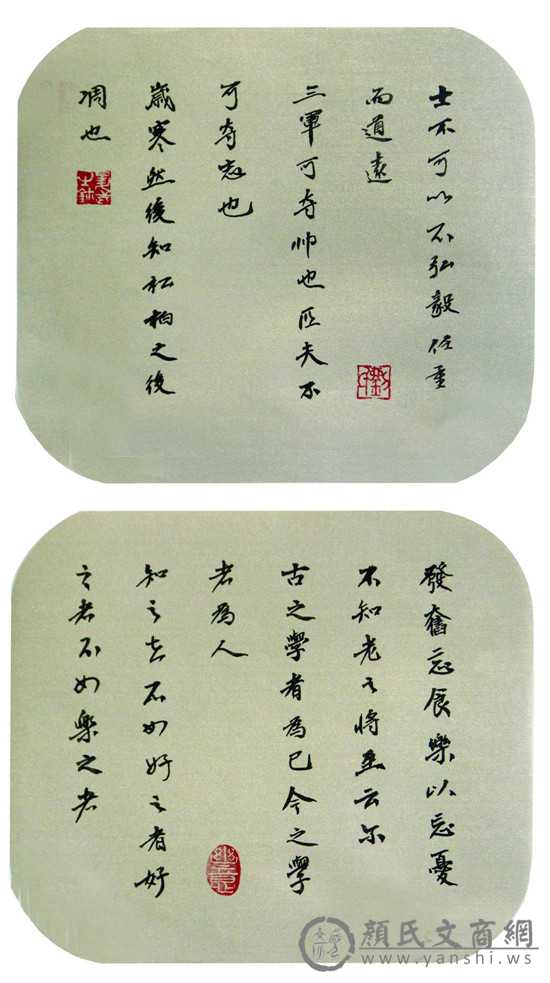 士不可以不弘毅任重
而道遠
三軍可夺帥也匹夫不
可夺志也
歲寒然後知松柏之後
凋也
發奮忘食樂以忘憂
不知老之將至云尔
古之學者為己今之學
者為人
知之者不如好之者好
之者不如樂之者
顏氏文商網
www.yanshi.ws